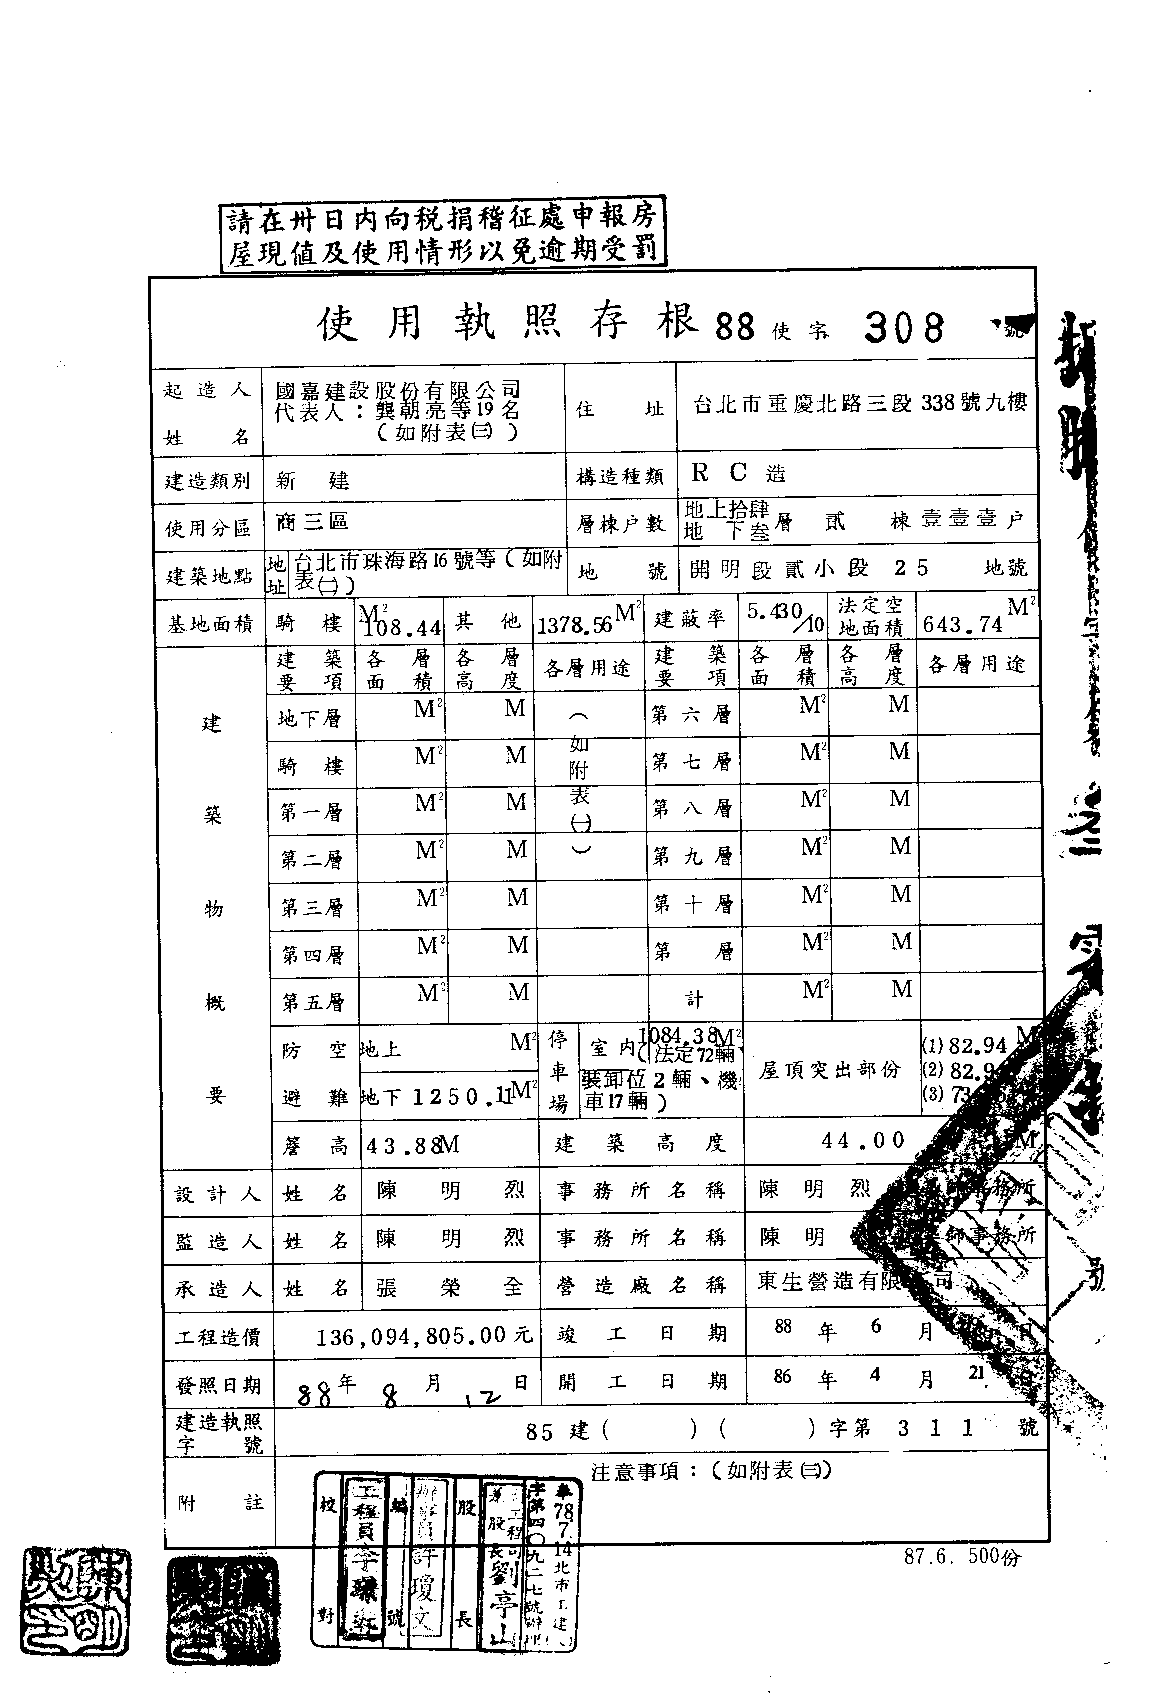 請在卅日內向稅捐稽征處申報房
屋現值及使用情形以免逾期受罰
使用執照存根 88 使字 308 號
起造人
姓名
國嘉建設股份有限公司
代表人：龔朝亮等19名
（如附表㈢）
住址 台北市重慶北路三段338號九樓
建造類別 新建 構造種類 RC造
使用分區 商三區 層棟戶數 地上拾肆
地下叁 層 貳 棟 壹壹壹 戶
建築地點 地址 台北市珠海路16號等（如附
表㈠）
地號 開明段貳小段 25 地號
基地面積 騎樓 M² 108.44 其他 1378.56 M² 建蔽率 5.430/10 法定空
地面積 643.74 M²
建築物概要
建築要項 各層面積 各層高度 各層用途 建築要項 各層面積 各層高度 各層用途
地下層 M² M （如附表㈠） 第六層 M² M
騎樓 M² M 第七層 M² M
第一層 M² M 第八層 M² M
第二層 M² M 第九層 M² M
第三層 M² M 第十層 M² M
第四層 M² M 第 層 M² M
第五層 M² M 計 M² M
防空避難 地上 M²
地下 1250.11 M²
停車場 室內 1084.38 M²
（法定72輛
裝卸位2輛、機
車17輛）
屋頂突出部份 (1) 82.94 M
(2) 82.9
(3) 73
簷高 43.88 M 建築高度 44.00 M
設計人 姓名 陳明烈 事務所名稱 陳明烈 師事務所
監造人 姓名 陳明烈 事務所名稱 陳明 師事務所
承造人 姓名 張榮全 營造廠名稱 東生營造有限 司
工程造價 136,094,805.00元 竣工日期 88年6月 日
發照日期 88年8月12日 開工日期 86年4月21
建造執照
字號 85建（ ）（ ）字第 311 號
附註 注意事項：（如附表㈢）
校對 工程員李 編號 許瓊文 股長 劉亭山
78.7.14北市工建
字第四〇九二七號
87.6. 500份
號